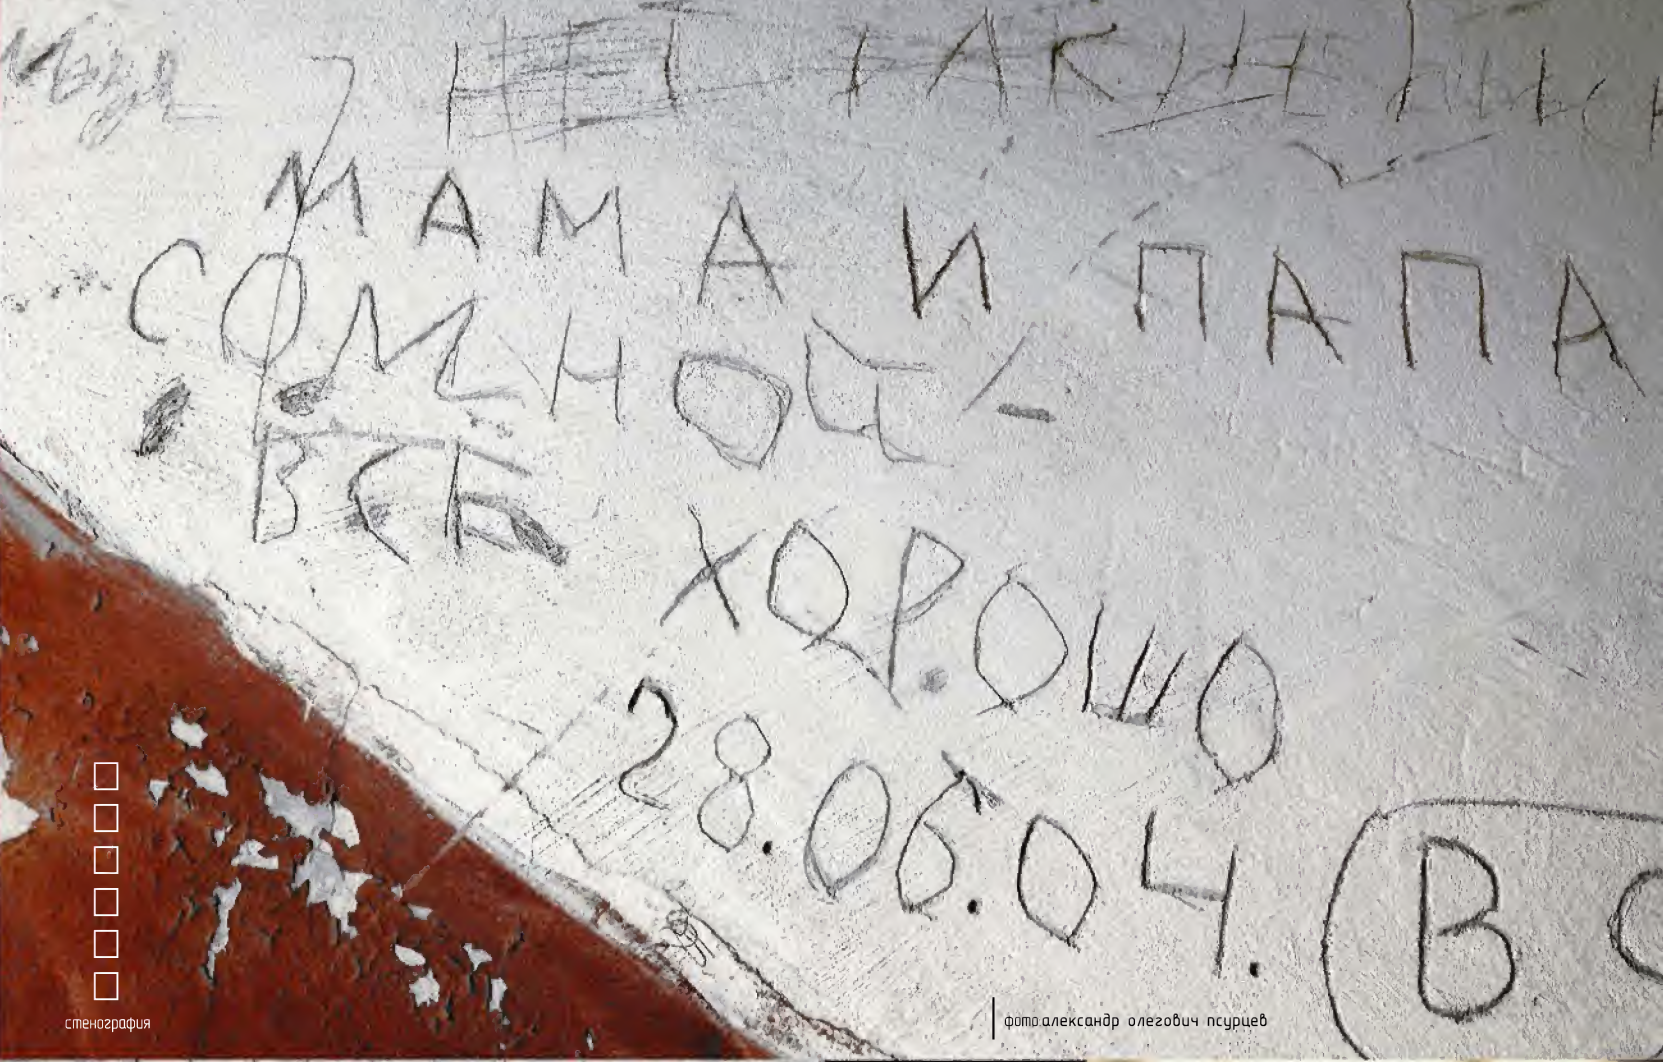 МАМА И ПАПА
СО МНОЙ
ВСЕ
ХОРОШО
28.06.04.
В С
стенография
фото.александр олегович псурцев